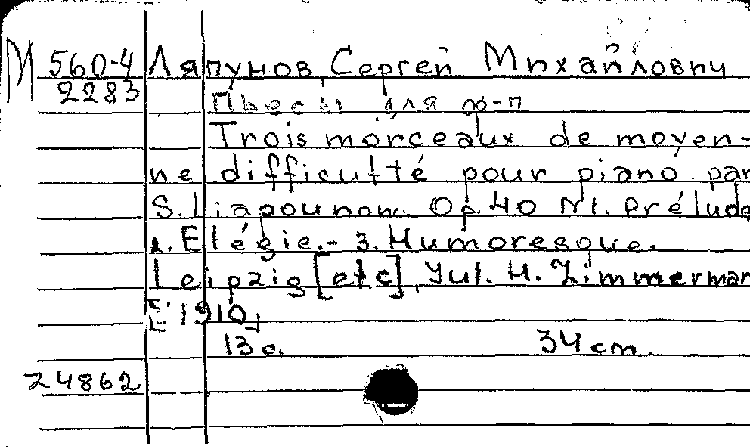 М 560-4 Ляпунов, Сергей Михайлович
2283 Пьесы для ф-п
Trois morceaux de moyen-
ne difficulté pour piano par
S. Liapounow. Op. 40 N1. Prélude
2. Elégie. - 3. Humoresque.
Leipzig [etc], Jul. H. Zimmerman
[1910]
13 с. 34 cm.
24862